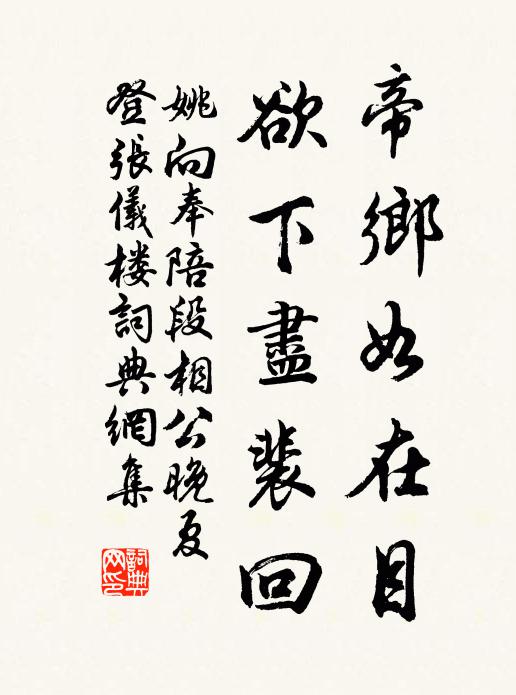 帝鄉如在目
欲下盡裴回
姚向奉陪段相公晚夏
登張儀楼詞典網集
詞典网印